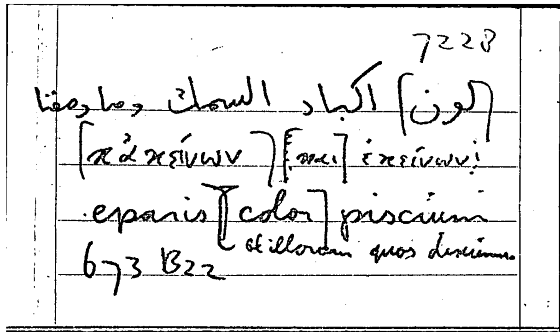 722B
[لون] اكباد السمك وما وصفنا
[κἀκείνων] [και] ἐκείνων:
eparis [color] piscium
et illorum quos diximus
673 B22